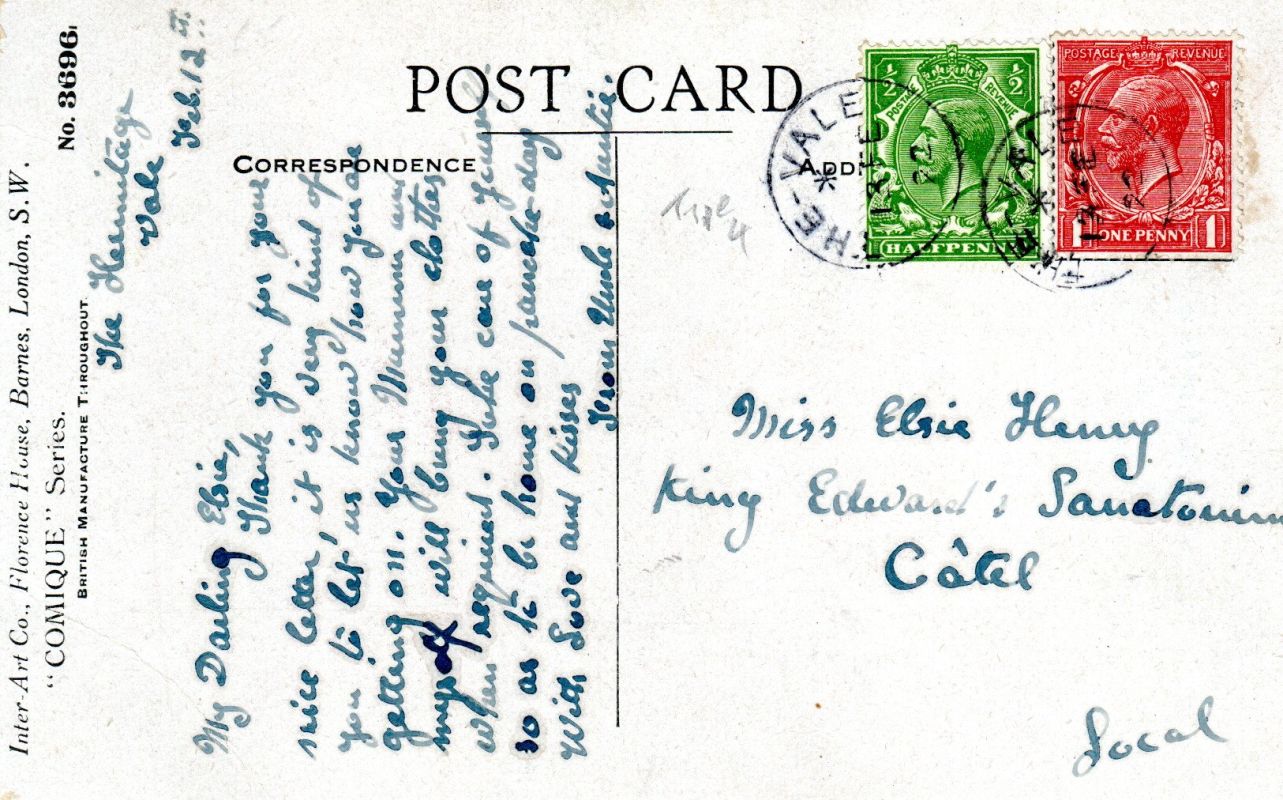 POST CARD
CORRESPONDENCE
Inter-Art Co., Florence House, Barnes, London, S.W.
"COMIQUE" Series.
No. 3696
BRITISH MANUFACTURE THROUGHOUT
The Hermitage
Vale
Feb. 12
My Darling Elsie,
Thank you for your
nice letter, it is very kind of
you to let us know how you are
getting on. Your Mummie and
myself will bring your clothes
when required. Take care of yourself
so as to be home on pancake-day
With Love and kisses
From Uncle & Auntie.
½ ½
POSTAGE REVENUE
HALFPENNY
POSTAGE REVENUE
1 ONE PENNY 1
THE-VALE
13 FE
22
THE-VALE
13 FE
22
Miss Elsie Henry
King Edward's Sanatorium
Câtel
Local